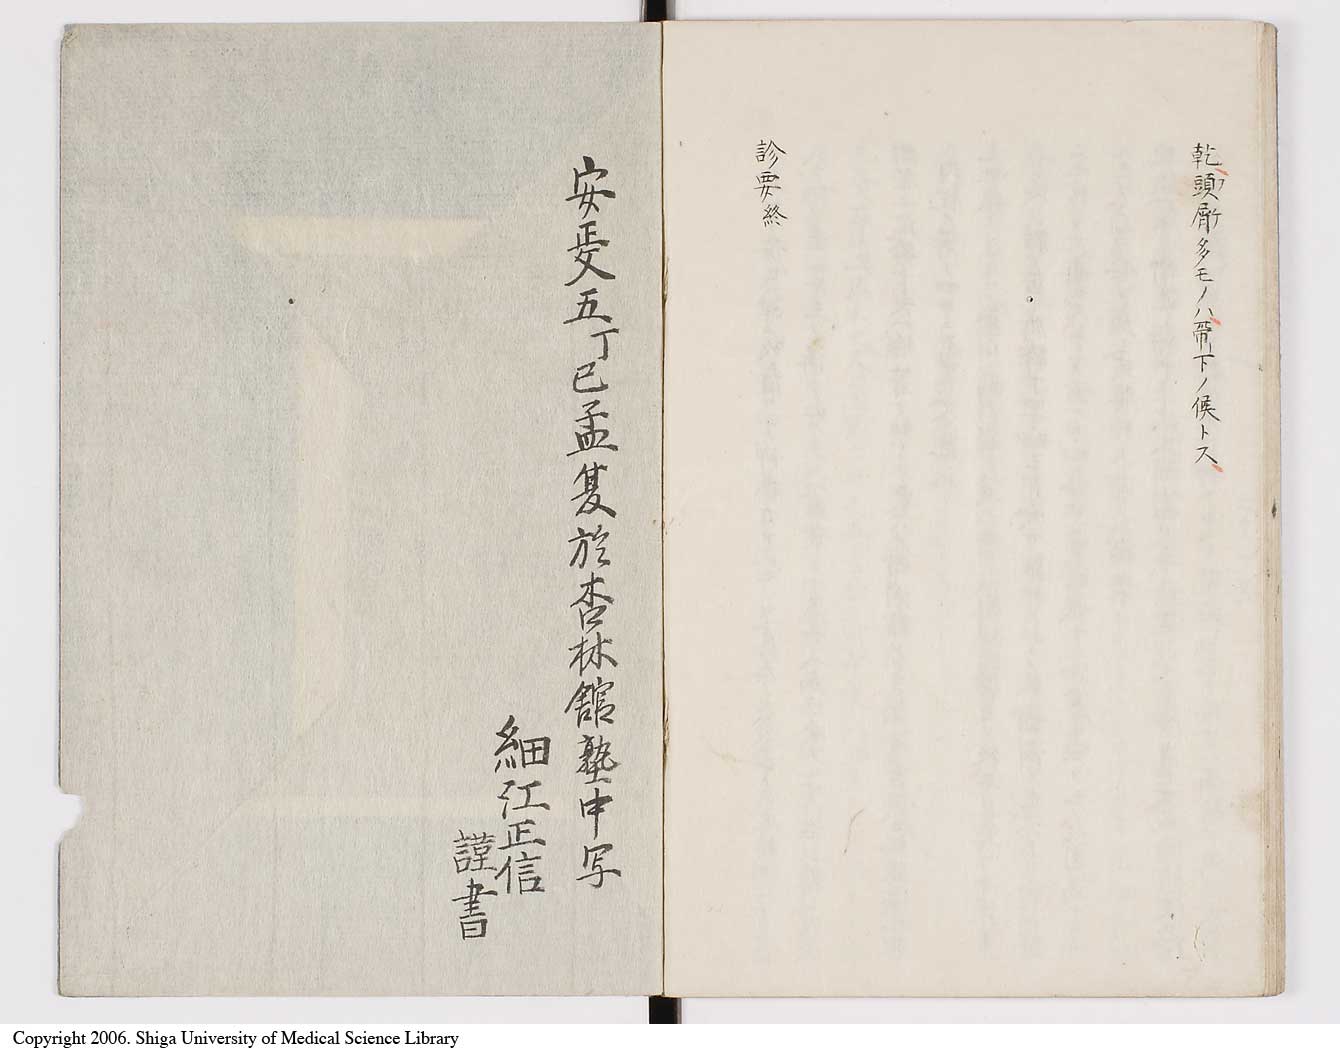 乾頭屑多モノハ帯下ノ候トス
診要終
安政五丁巳孟夏於杏林舘塾中写
細江正信
謹書
Copyright 2006. Shiga University of Medical Science Library